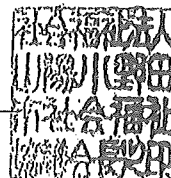 社会福祉法人
山陽小野田
市社会福祉
協議会会長印